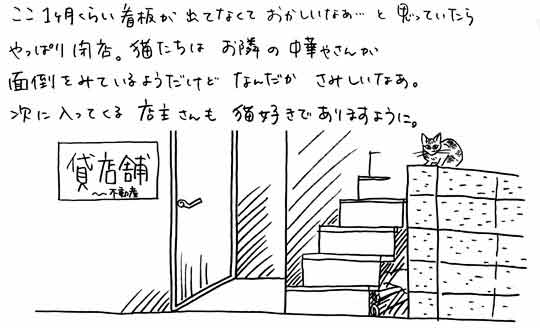 ここ1ヶ月くらい看板が出てなくておかしいなぁ…と思っていたら
やっぱり閉店。猫たちはお隣の中華やさんが
面倒をみているようだけどなんだかさみしいなぁ。
次に入ってくる店主さんも猫好きでありますように。
貸店舗
〜不動産